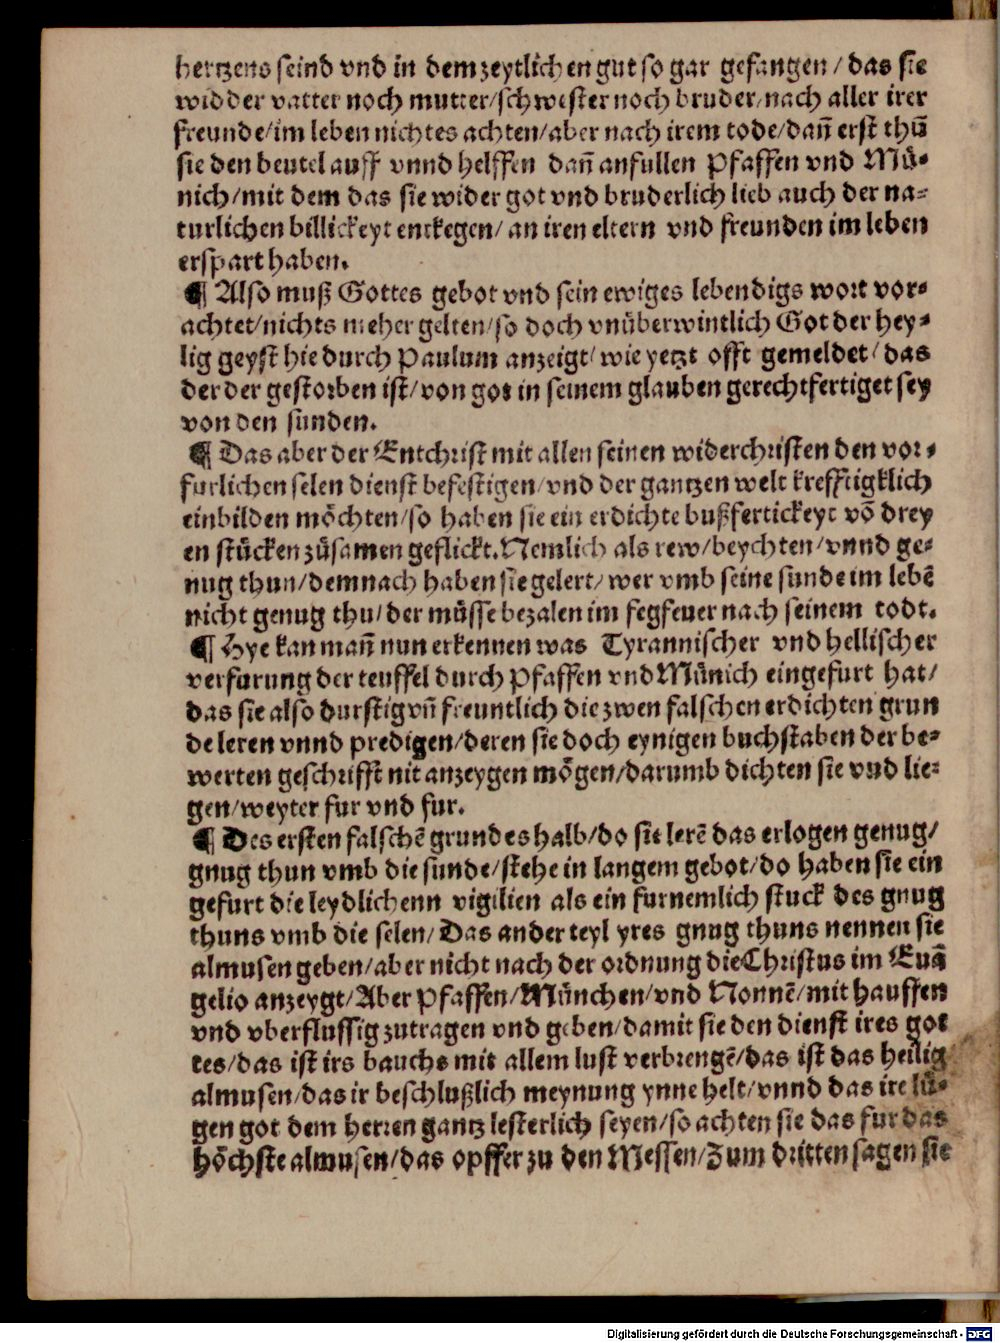 hertzens seind vnd in dem zeytlichen gut so gar gefangen / das sie
widder vatter noch mutter/schwester noch bruder/nach aller irer
freunde/im leben nichtes achten/aber nach irem tode/dañ erst thũ
sie den beutel auff vnnd helffen dañ anfullen Pfaffen vnd Mü-
nich/mit dem das sie wider got vnd bruderlich lieb auch der na-
turlichen billickeyt entkegen/ an iren eltern vnd freunden im leben
erspart haben.
¶ Also muß Gottes gebot vnd sein ewiges lebendigs wort vor-
achtet/nichts meher gelten/so doch vnüberwintlich Got der hey-
lig geyst hie durch Paulum anzeigt/ wie yetzt offt gemeldet/ das
der der gestorben ist/von got in seinem glauben gerechtfertiget sey
von den sunden.
¶ Das aber der Entchrist mit allen seinen widerchristen den vor-
furlichen selen dienst befestigen/vnd der gantzen welt krefftigklich
einbilden möchten/so haben sie ein erdichte bußfertickeyt võ drey
en stücken züsamen geflickt. Nemlich als rew/beychten/vnnd ge-
nug thun/demnach haben sie gelert/ wer vmb seine sunde im lebẽ
nicht genug thu/der müsse bezalen im fegfeuer nach seinem todt.
¶ Hye kan mañ nun erkennen was Tyrannischer vnd hellischer
verfurung der teuffel durch Pfaffen vnd Münich eingefurt hat/
das sie also durstig vñ freuntlich die zwen falschen erdichten grun
de leren vnnd predigen/deren sie doch eynigen buchstaben der be-
werten geschrifft nit anzeygen mögen/darumb dichten sie vnd lie-
gen/weyter fur vnd fur.
¶ Des ersten falschẽ grundes halb/do sie lerẽ das erlogen genug/
gnug thun vmb die sunde/stehe in langem gebot/do haben sie ein
gefurt die leydlichenn vigilien als ein furnemlich stuck des gnug
thuns vmb die selen/ Das ander teyl yres gnug thuns nennen sie
almusen geben/aber nicht nach der ordnung die Christus im Euã
gelio anzeygt/Aber Pfaffen/München/vnd Nonnẽ/mit hauffen
vnd vberflussig zutragen vnd geben/damit sie den dienst ires got
tes/das ist irs bauchs mit allem lust verbrengẽ/das ist das heilig
almusen/das ir beschlußlich meynung ynne helt/vnnd das ire lü-
gen got dem herren gantz lesterlich seyen/so achten sie das fur das
höchste almusen/das opffer zu den Messen/Zum dritten sagen sie
Digitalisierung gefördert durch die Deutsche Forschungsgemeinschaft - DFG